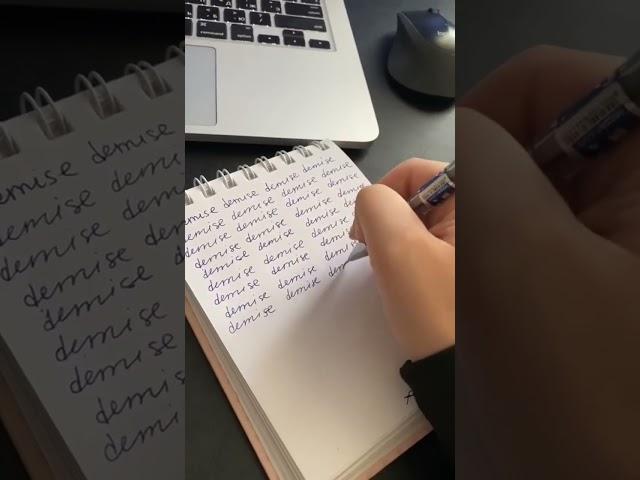 demise demise demise demise
demise demise demise demise
demise demise demise demise
demise demise demise demise
demise demise demise
demise demise demise
demise demise demise
demise demise demise
demise demise dem